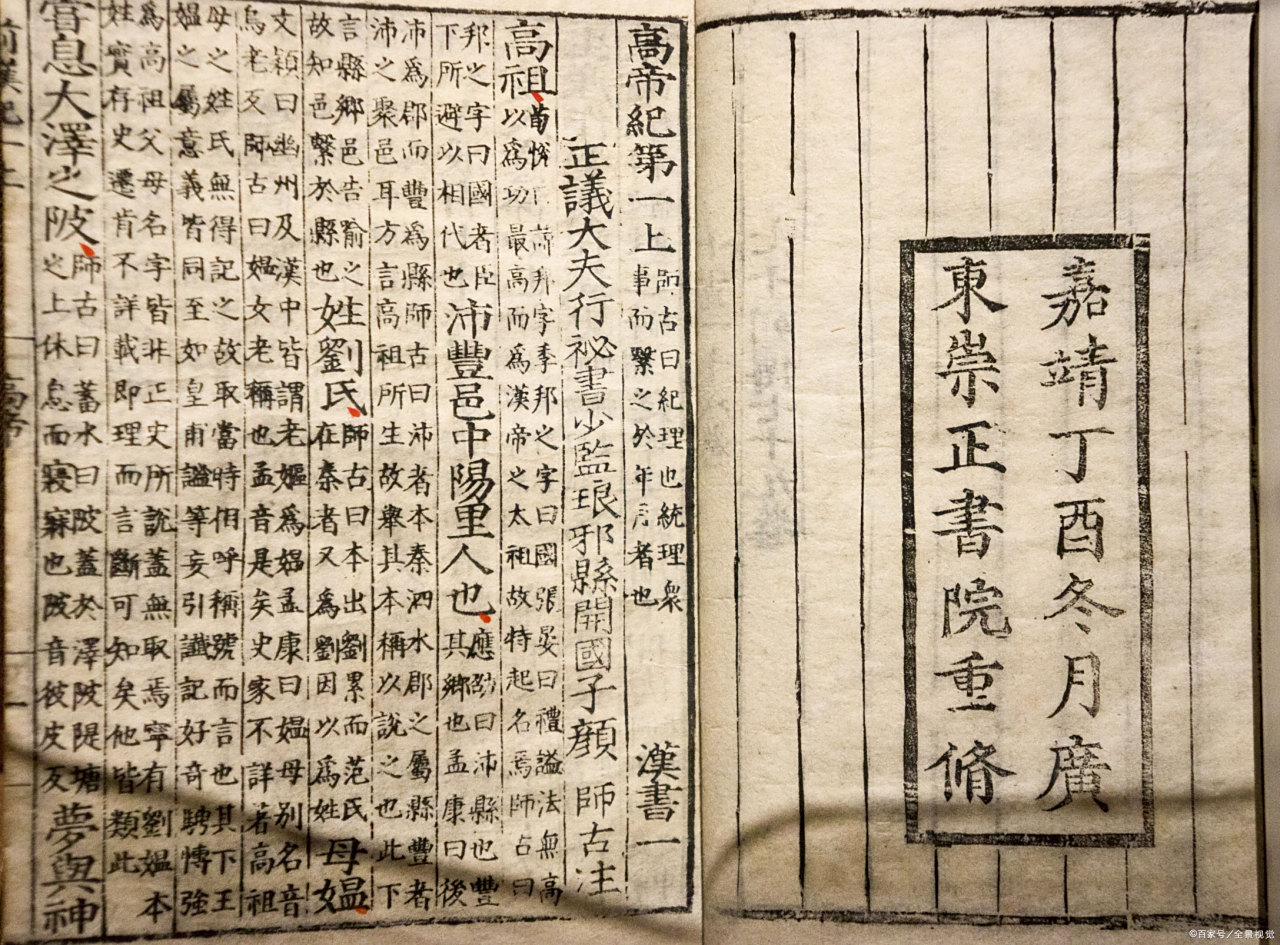 嘉靖丁酉冬月廣
東崇正書院重脩
高帝紀第一上
師古曰紀理也統理衆
事而繫之於年月者也
漢書一
正議大夫行祕書少監琅邪縣開國子顏 師古注
高祖
荀悅諱邦字季邦之字曰國張晏曰禮謚法無高
以爲功最高而爲漢帝之太祖故特起名焉師古曰
邦之字曰國者臣
下所避以相代也
沛豐邑中陽里人也
應劭曰沛縣也豐
其鄉也孟康曰後
沛爲郡而豐爲縣師古曰沛者本秦泗水郡之屬縣豐者
沛之聚邑耳方言高祖所生故舉其本稱以說之也此下
言縣鄉邑告喻之
故知邑繫於縣也
姓劉氏
師古曰本出劉累而范氏
在秦者又爲劉因以爲姓
母媼
文穎曰幽州及漢中皆謂老嫗爲媼孟康曰媼母别名音
烏老反師古曰媼女老稱也孟音是矣史家不詳著高祖
母之姓氏無得記之故取當時相呼稱號而言也其下王
媼之屬意義皆同至如皇甫謐等妄引讖記好奇騁博強
爲高祖父母名字皆非正史所說蓋無取焉寧有劉媼本
姓實存史遷肯不詳載即理而言斷可知矣他皆類此
甞息大澤之陂
師古曰蓄水曰陂蓋於澤陂隄塘
之上休息而寢寐也陂音彼皮反
夢與神
前漢紀一上
高帝
©百家号／全景视觉